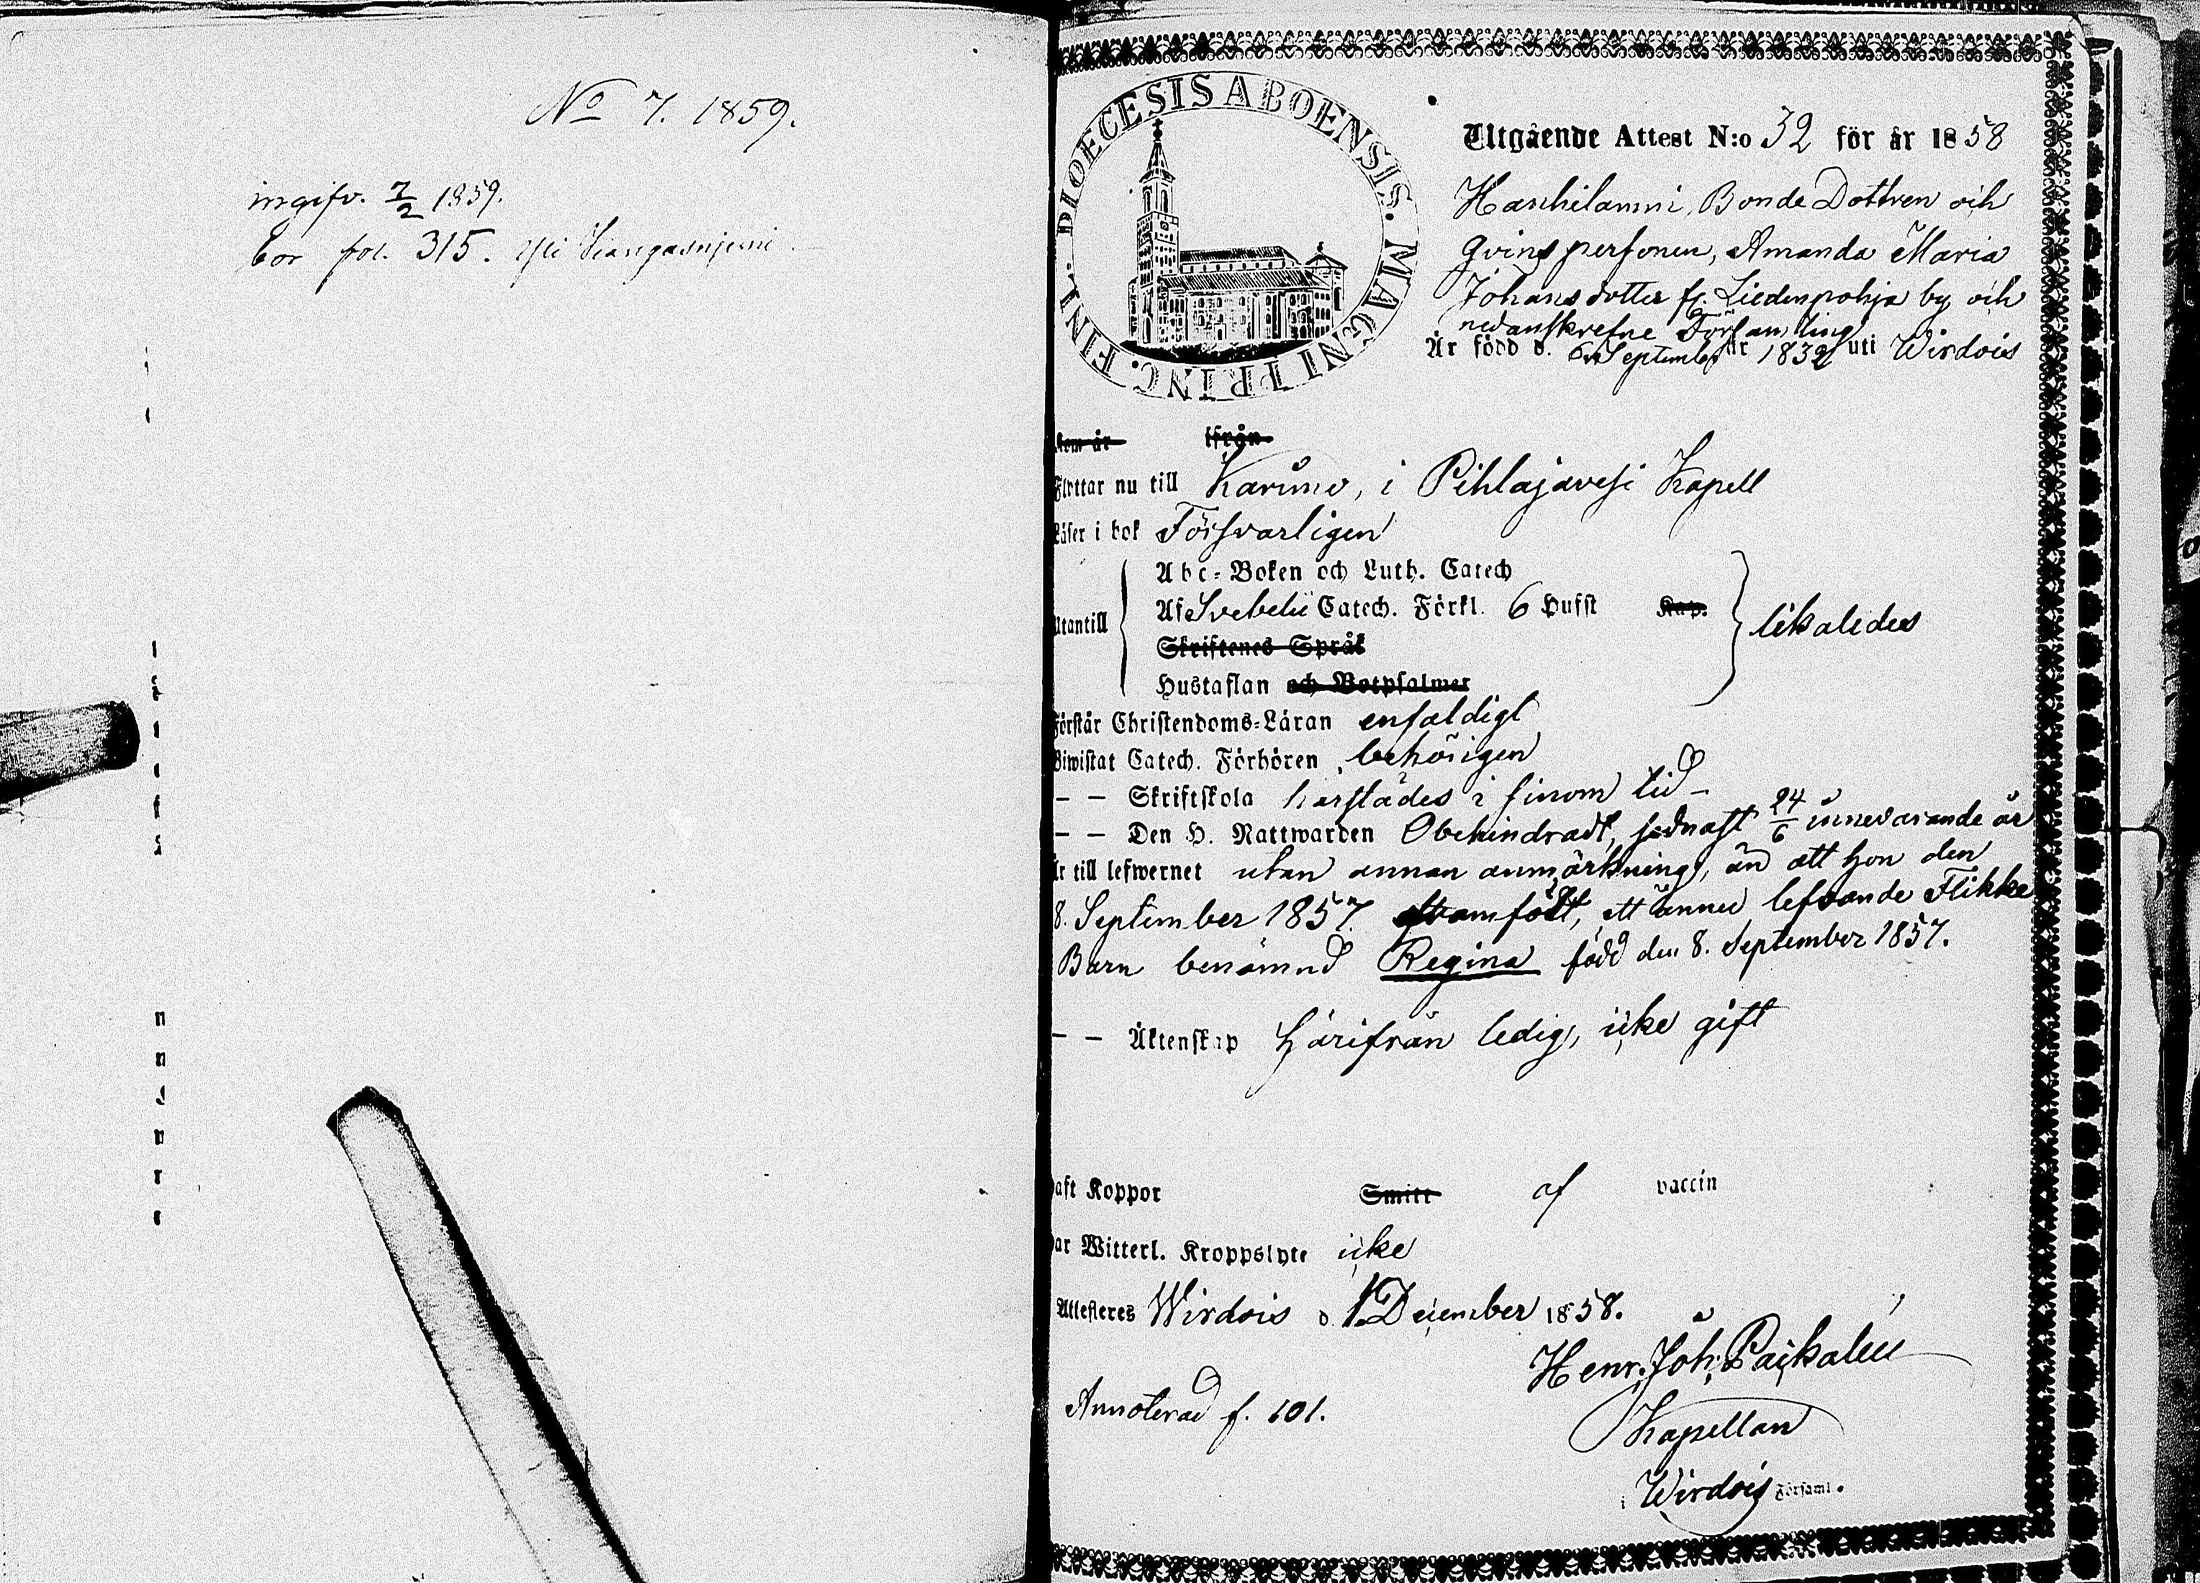 No 7. 1859.
ingifv. 7/2 1859.
bor fol. 315.
DIOECESIS ABOENSIS. MAGNI PRINC. FINL.
Utgående Attest N:o 32 för år 1858
Hanhilammi, Bonde Dottren och
Qvinspersonen, Amanda Maria
Johansdotter fr. Liedenpohja by och
nedanskrefne Församling
Är född d. 6 September år 1832 uti Wirdois
kom år ifrån
Flyttar nu till Karimo, i Pihlajavesi Kapell
Läser i bok Försvarligen
Utantill
Abc-Boken och Luth. Catech
Af Svebelii Catech. Förkl. 6 Hufst Kap.
Skriftenes Språk
Hustaflan och Botpsalmer
likaledes
Förstår Christendoms-Läran enfaldigt
Biwistat Catech. Förhören behörigen
— — Skriftskola härstädes i sinom tid —
— — Den H. Nattwarden Obehindradt, sednast 24/6 innevarande år
Är till lefwernet utan annan anmärkning, än att hon den
8. September 1857 framfödt, ett ännu lefvande Flikke
Barn benämnd Regina född den 8. September 1857.
— — Äktenskap Härifrån ledig, icke gift
haft Koppor Smitt af vaccin
Har Witterl. Kroppslyte icke
Attesteres Wirdois d. 1 December 1858.
Henr. Joh.
Annoterad f. 101.
Kapellan
i Wirdois Församl.